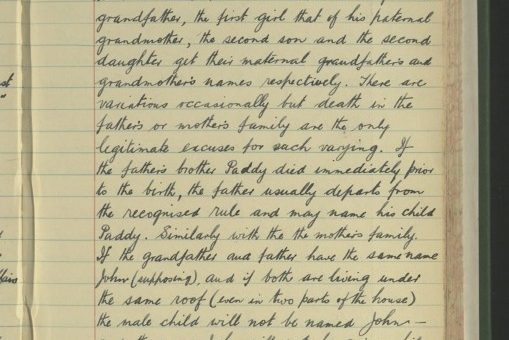 grandfather, the first girl that of his paternal
grandmother, the second son and the second
daughter get their maternal grandfather's and
grandmother's names respectively. There are
variations occasionally but death in the
father's or mother's family are the only
legitimate excuses for such varying. If
the father's brother Paddy died immediately prior
to the birth, the father usually departs from
the recognised rule and may name his child
Paddy. Similarly with the the mother's family.
If the grandfather and father have the same name
John (supposing), and if both are living under
the same roof (even in two parts of the house)
the male child will not be named John —